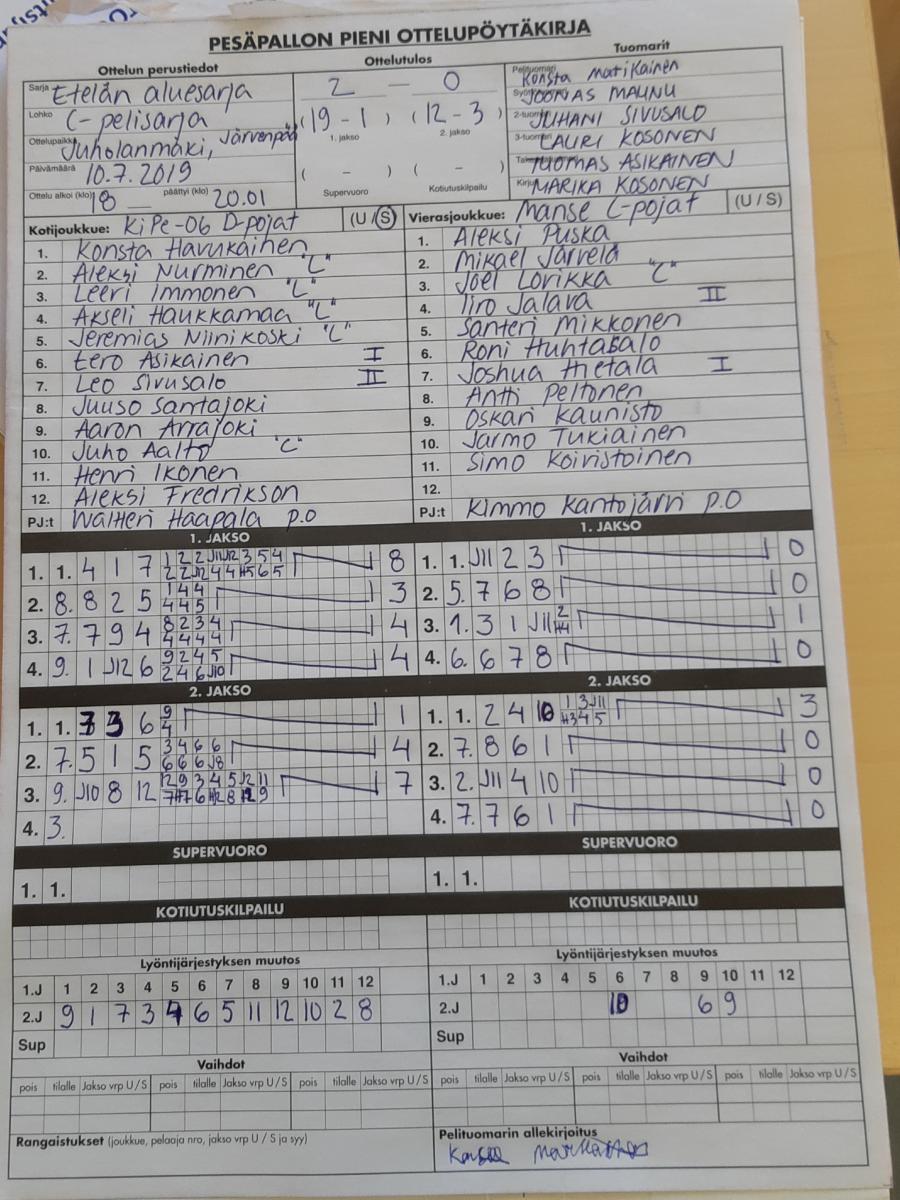 PESÄPALLON PIENI OTTELUPÖYTÄKIRJA
Ottelun perustiedot
Sarja Etelän aluesarja
Lohko C-pelisarja
Ottelupaikka Juholanmäki, Järvenpää
Päivämäärä 10.7.2019
Ottelu alkoi (klo) 18 päättyi (klo) 20.01
Ottelutulos
2 - 0
(19 - 1) (12 - 3)
1. jakso 2. jakso
( - ) ( - )
Supervuoro Kotiutuskilpailu
Tuomarit
Pelituomari Konsta Matikainen
JOONAS MAUNU
2-tuomari JUHANI SIVUSALO
3-tuomari LAURI KOSONEN
TUOMAS ASIKAINEN
MARIKA KOSONEN
Kotijoukkue: KiPe-06 D-pojat (U/S)
1. Konsta Havukainen
2. Aleksi Nurminen "C"
3. Leeri Immonen "C"
4. Akseli Haukkamaa "C"
5. Jeremias Niinikoski "C"
6. Eero Asikainen I
7. Leo Sivusalo II
8. Juuso Santajoki
9. Aaron Arrajoki
10. Juho Aalto "C"
11. Henri Ikonen
12. Aleksi Fredrikson
PJ:t Waltteri Haapala P.O
Vierasjoukkue: Manse C-pojat (U/S)
1. Aleksi Puska
2. Mikael Järvelä
3. Joel Lorikka "C"
4. Iiro Jalava II
5. Santeri Mikkonen
6. Roni Huhtasalo
7. Joshua Hietala I
8. Antti Peltonen
9. Oskari Kaunisto
10. Jarmo Tukiainen
11. Simo Koivistoinen
12.
PJ:t Kimmo Kantojärvi P.O
1. JAKSO
1. 1. 4 1 7 8
2. 8. 8 2 5 1 4 4 3
4 4 5
3. 7. 7 9 4 8 2 3 4 4
4 4 4 4
4. 9. 1 J12 6 9 2 4 5 4
2 4 6 J10
2. JAKSO
1. 1. 7 3 6 9 1
4
2. 7. 5 1 5 3 4 6 6 4
6 6 6 J8
3. 9. J10 8 12 12 9 3 4 5 J2 11 7
4. 3.
SUPERVUORO
1. 1.
KOTIUTUSKILPAILU
1. JAKSO
1. 1. J11 2 3 0
2. 5. 7 6 8 0
3. 1. 3 1 J11 2 1
H4
4. 6. 6 7 8 0
2. JAKSO
1. 1. 2 4 10 1 3 J11 3
H3 4 5
2. 7. 8 6 1 0
3. 2. J11 4 10 0
4. 7. 7 6 1 0
SUPERVUORO
1. 1.
KOTIUTUSKILPAILU
Lyöntijärjestyksen muutos
1.J 1 2 3 4 5 6 7 8 9 10 11 12
2.J 9 1 7 3 4 6 5 11 12 10 2 8
Sup
Vaihdot
pois tilalle Jakso vrp U/S pois tilalle Jakso vrp U/S pois tilalle Jakso vrp U/S
Rangaistukset (joukkue, pelaaja nro, jakso vrp U/S ja syy)
Lyöntijärjestyksen muutos
1.J 1 2 3 4 5 6 7 8 9 10 11 12
2.J 10 6 9
Sup
Vaihdot
pois tilalle Jakso vrp U/S pois tilalle Jakso vrp U/S pois tilalle Jakso vrp U/S
Pelituomarin allekirjoitus